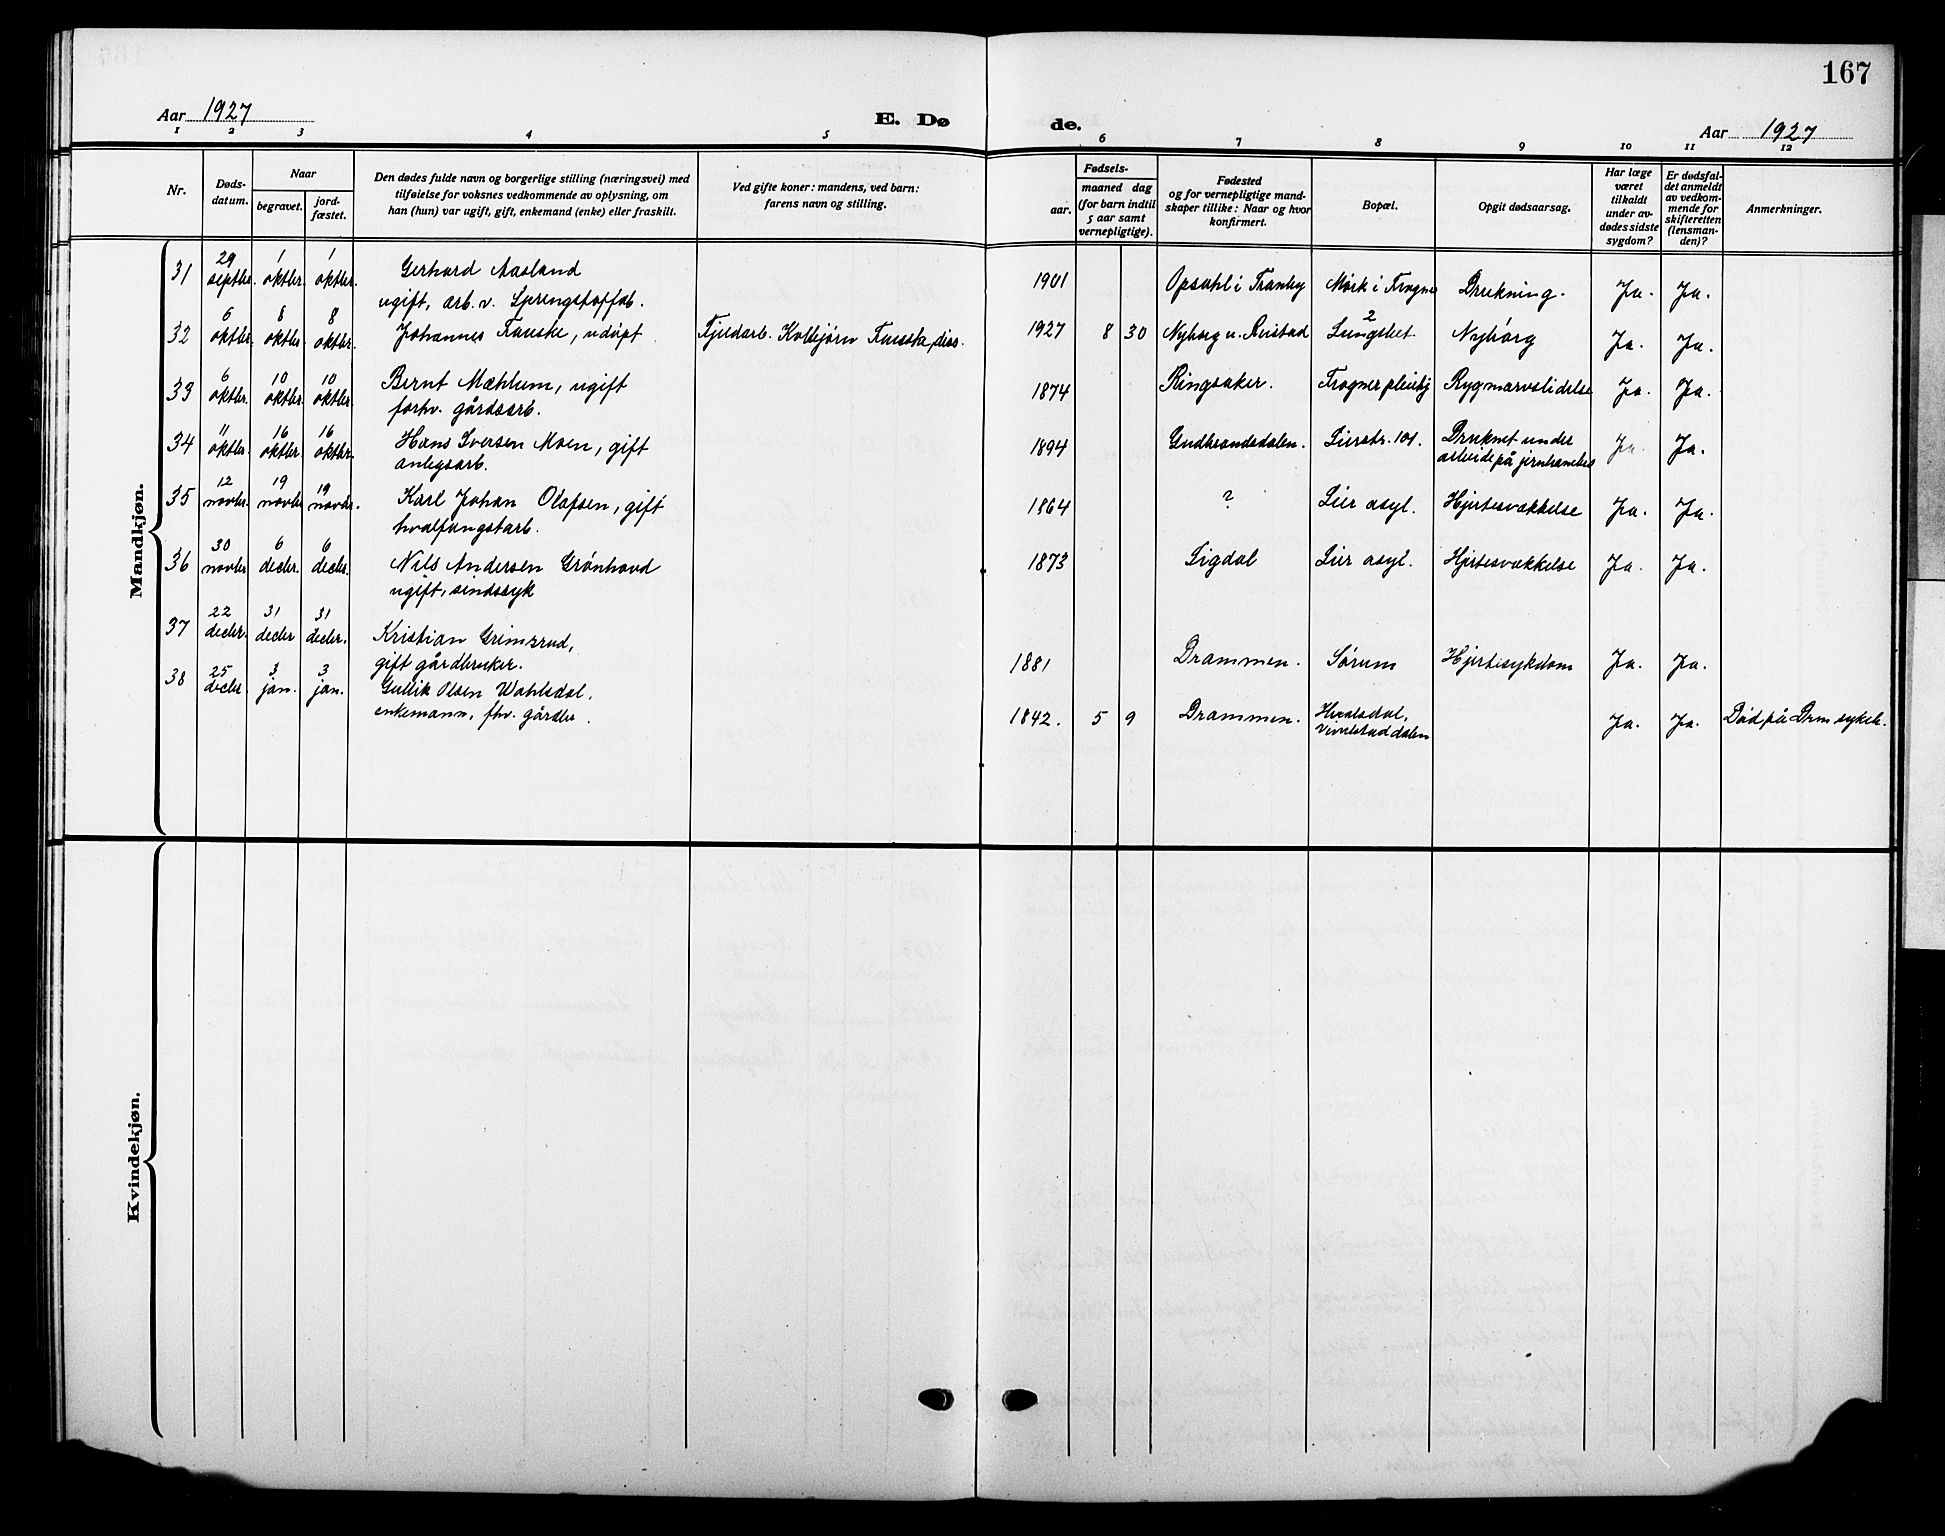 167
Aar 1927
E. Dø
de.
Aar 1927
1 2 3 4 5 6 7 8 9 10 11 12
Nr.
Døds-
datum.
Naar
begravet.
jord-
fæstet.
Den dødes fulde navn og borgerlige stilling (næringsvei) med
tilføielse for voksnes vedkommende av oplysning, om
han (hun) var ugift, gift, enkemand (enke) eller fraskilt.
Ved gifte koner: mandens, ved barn:
farens navn og stilling.
Fødsels-
aar.
maaned dag
(for barn indtil
5 aar samt
vernepligtige).
Fødested
og for vernepligtige mand-
skaper tillike: Naar og hvor
konfirmert.
Bopæl.
Opgit dødsaarsag.
Har læge
været
tilkaldt
under av-
dødes sidste
sygdom?
Er dødsfal-
det anmeldt
av vedkom-
mende for
skifteretten
(lensman-
den)?
Anmerkninger.
Mandkjøn.
31 29 septbr. 1 oktbr. 1 oktbr. Gerhard Aasland 1901 Opsahl i Tranby Mørk i Frogner Drukning. Ja. Ja.
ugift, arb. v. Sprengstoffab.
32 6 oktbr. 8 oktbr. 8 oktbr. Johannes Fauske, udøpt Fjeldarb. Kolbjørn Fauske, diss. 1927 8 30 Nyborg u. Reistad 2 Nybårg Ja. Ja.
33 6 oktbr. 10 oktbr. 10 oktbr. Bernt Mæhlum, ugift 1874 Ringsaker. Frogner pleiehj Rygmarvslidelse Ja. Ja.
forhv. gårdsarb.
34 11 oktbr. 16 oktbr. 16 oktbr. Hans Iversen Moen, gift 1894 Gudbrandsdalen. Lierstr. 101. Druknet under Ja. Ja.
anlegsarb. arbeide på
35 12 novbr. 19 novbr 19 novbr. Karl Johan Olafsen, gift 1864 ? Lier asyl. Hjertesvækkelse Ja. Ja.
hvalfangstarb.
36 30 novbr 6 decbr. 6 decbr. Nils Andersen Grønhovd 1873 Sigdal Lier asyl. Hjertesvækkelse Ja. Ja.
ugift, sindssyk
37 22 decbr. 31 decbr 31 decbr. Kristian Grimsrud,
gift gårdbruker. 1881 Drammen. Sørum Hjertesykdom Ja. Ja.
38 25 decbr. 3 jan. 3 jan. Gullik Olsen Wahlsdal,
enkemann, fhv. gårdbr. 1842. 5 9 Drammen. Ja. Ja. Død på Drm sykeh.
Kvindekjøn.